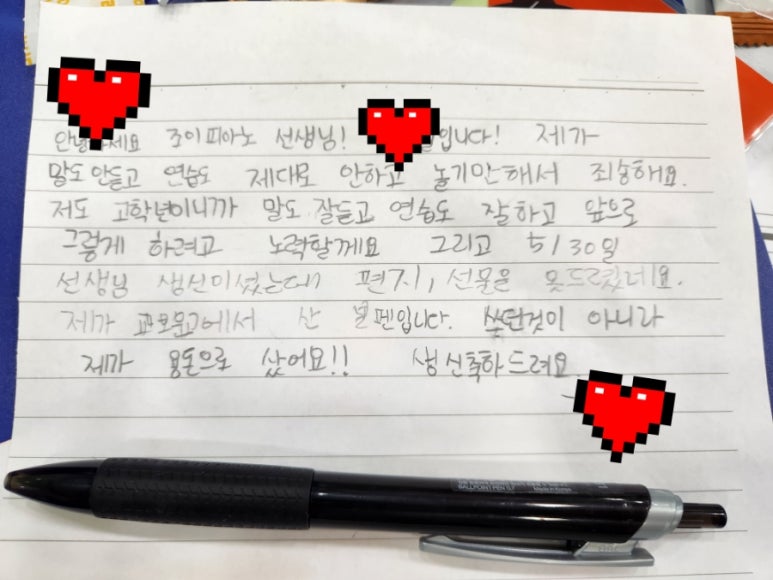 안녕하세요 조이피아노 선생님! 입니다! 제가
말도 안듣고 연습도 제대로 안하고 놀기만해서 죄송해요.
저도 고학년이니까 말도 잘듣고 연습도 잘하고 앞으로
그렇게 하려고 노력할께요 그리고 5/30일
선생님 생신이셨는데 편지, 선물을 못드렸네요.
제가 교보문고에서 산 볼펜입니다. 쓰던것이 아니라
제가 용돈으로 샀어요!! 생신축하드려요